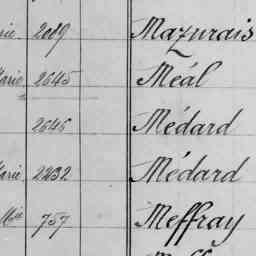 2019 Mazurais
Marie 2645 Méal
2646 Médard
Marie 2232 Médard
757 Meffray